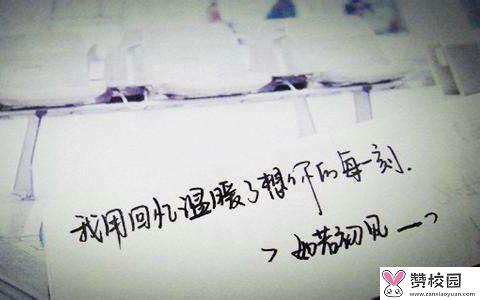 我用回忆温暖了想你的每一刻.
﹥如若初见一﹥
赞校园
www.zanxiaoyuan.com